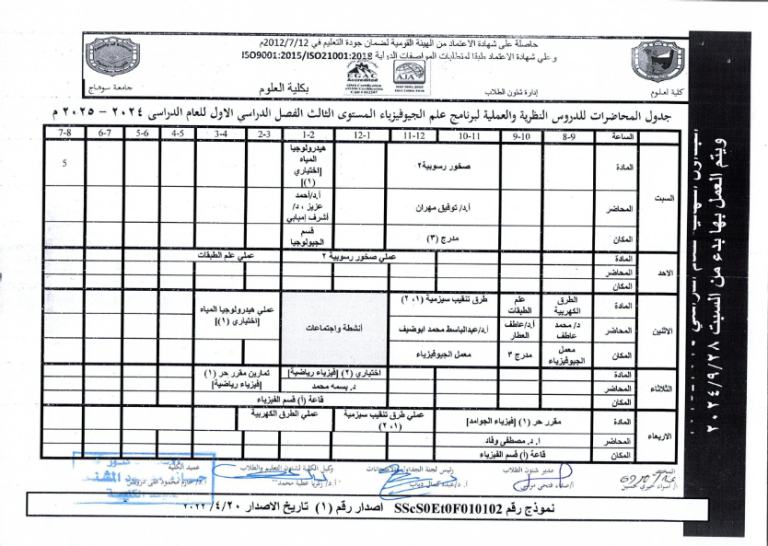 حاصلة على شهادة الاعتماد من الهيئة القومية لضمان جودة التعليم في 2012/7/12م
وعلى شهادة الاعتماد طبقا لمتطلبات المواصفات الدولية ISO9001:2015/ISO21001:2018
كلية العلوم
إدارة شئون الطلاب
EGAC
Accredited
AJA
بكلية العلوم
جامعة سوهاج
جدول المحاضرات للدروس النظرية والعملية لبرنامج علم الجيوفيزياء المستوى الثالث الفصل الدراسي الاول للعام الدراسى ٢٠٢٤ – ٢٠٢٥ م
الساعة 8-9 9-10 10-11 11-12 12-1 1-2 2-3 3-4 4-5 5-6 6-7 7-8
السبت
المادة صخور رسوبية٢ هيدرولوجيا المياه [اختياري (١)] 5
المحاضر أ.د/ توفيق مهران أ.د/أحمد عزيز ، د/ أشرف إمبابي
المكان مدرج (٣) قسم الجيولوجيا
الاحد
المادة عملي صخور رسوبية ٢ عملي علم الطبقات
المحاضر
المكان
الاثنين
المادة الطرق الكهربية علم الطبقات طرق تنقيب سيزمية (٢٠١) أنشطة واجتماعات عملي هيدرولوجيا المياه [اختياري (١)]
المحاضر د/ محمد عاطف أ.د/عاطف العطار أ.د/عبدالباسط محمد ابوضيف
المكان معمل الجيوفيزياء مدرج ٣ معمل الجيوفيزياء
الثلاثاء
المادة اختياري (٢) [فيزياء رياضية] تمارين مقرر حر (١) [فيزياء رياضية]
المحاضر د. بسمه محمد
المكان قاعة (أ) قسم الفيزياء
الاربعاء
المادة مقرر حر (١) [فيزياء الجوامد] عملي طرق تنقيب سيزمية (٢٠١) عملي الطرق الكهربية
المحاضر ا. د. مصطفي وفاد
المكان قاعة (أ) قسم الفيزياء
ويتم العمل بها بدء من السبت ٢٠٢٤/٩/٢٨
المختص
مدير شئون الطلاب
وكيل الكلية لشئون التعليم والطلاب
عميد الكلية
نموذج رقم SScS0Et0F010102 اصدار رقم (١) تاريخ الاصدار ٢٠٢٢/٤/٢٠